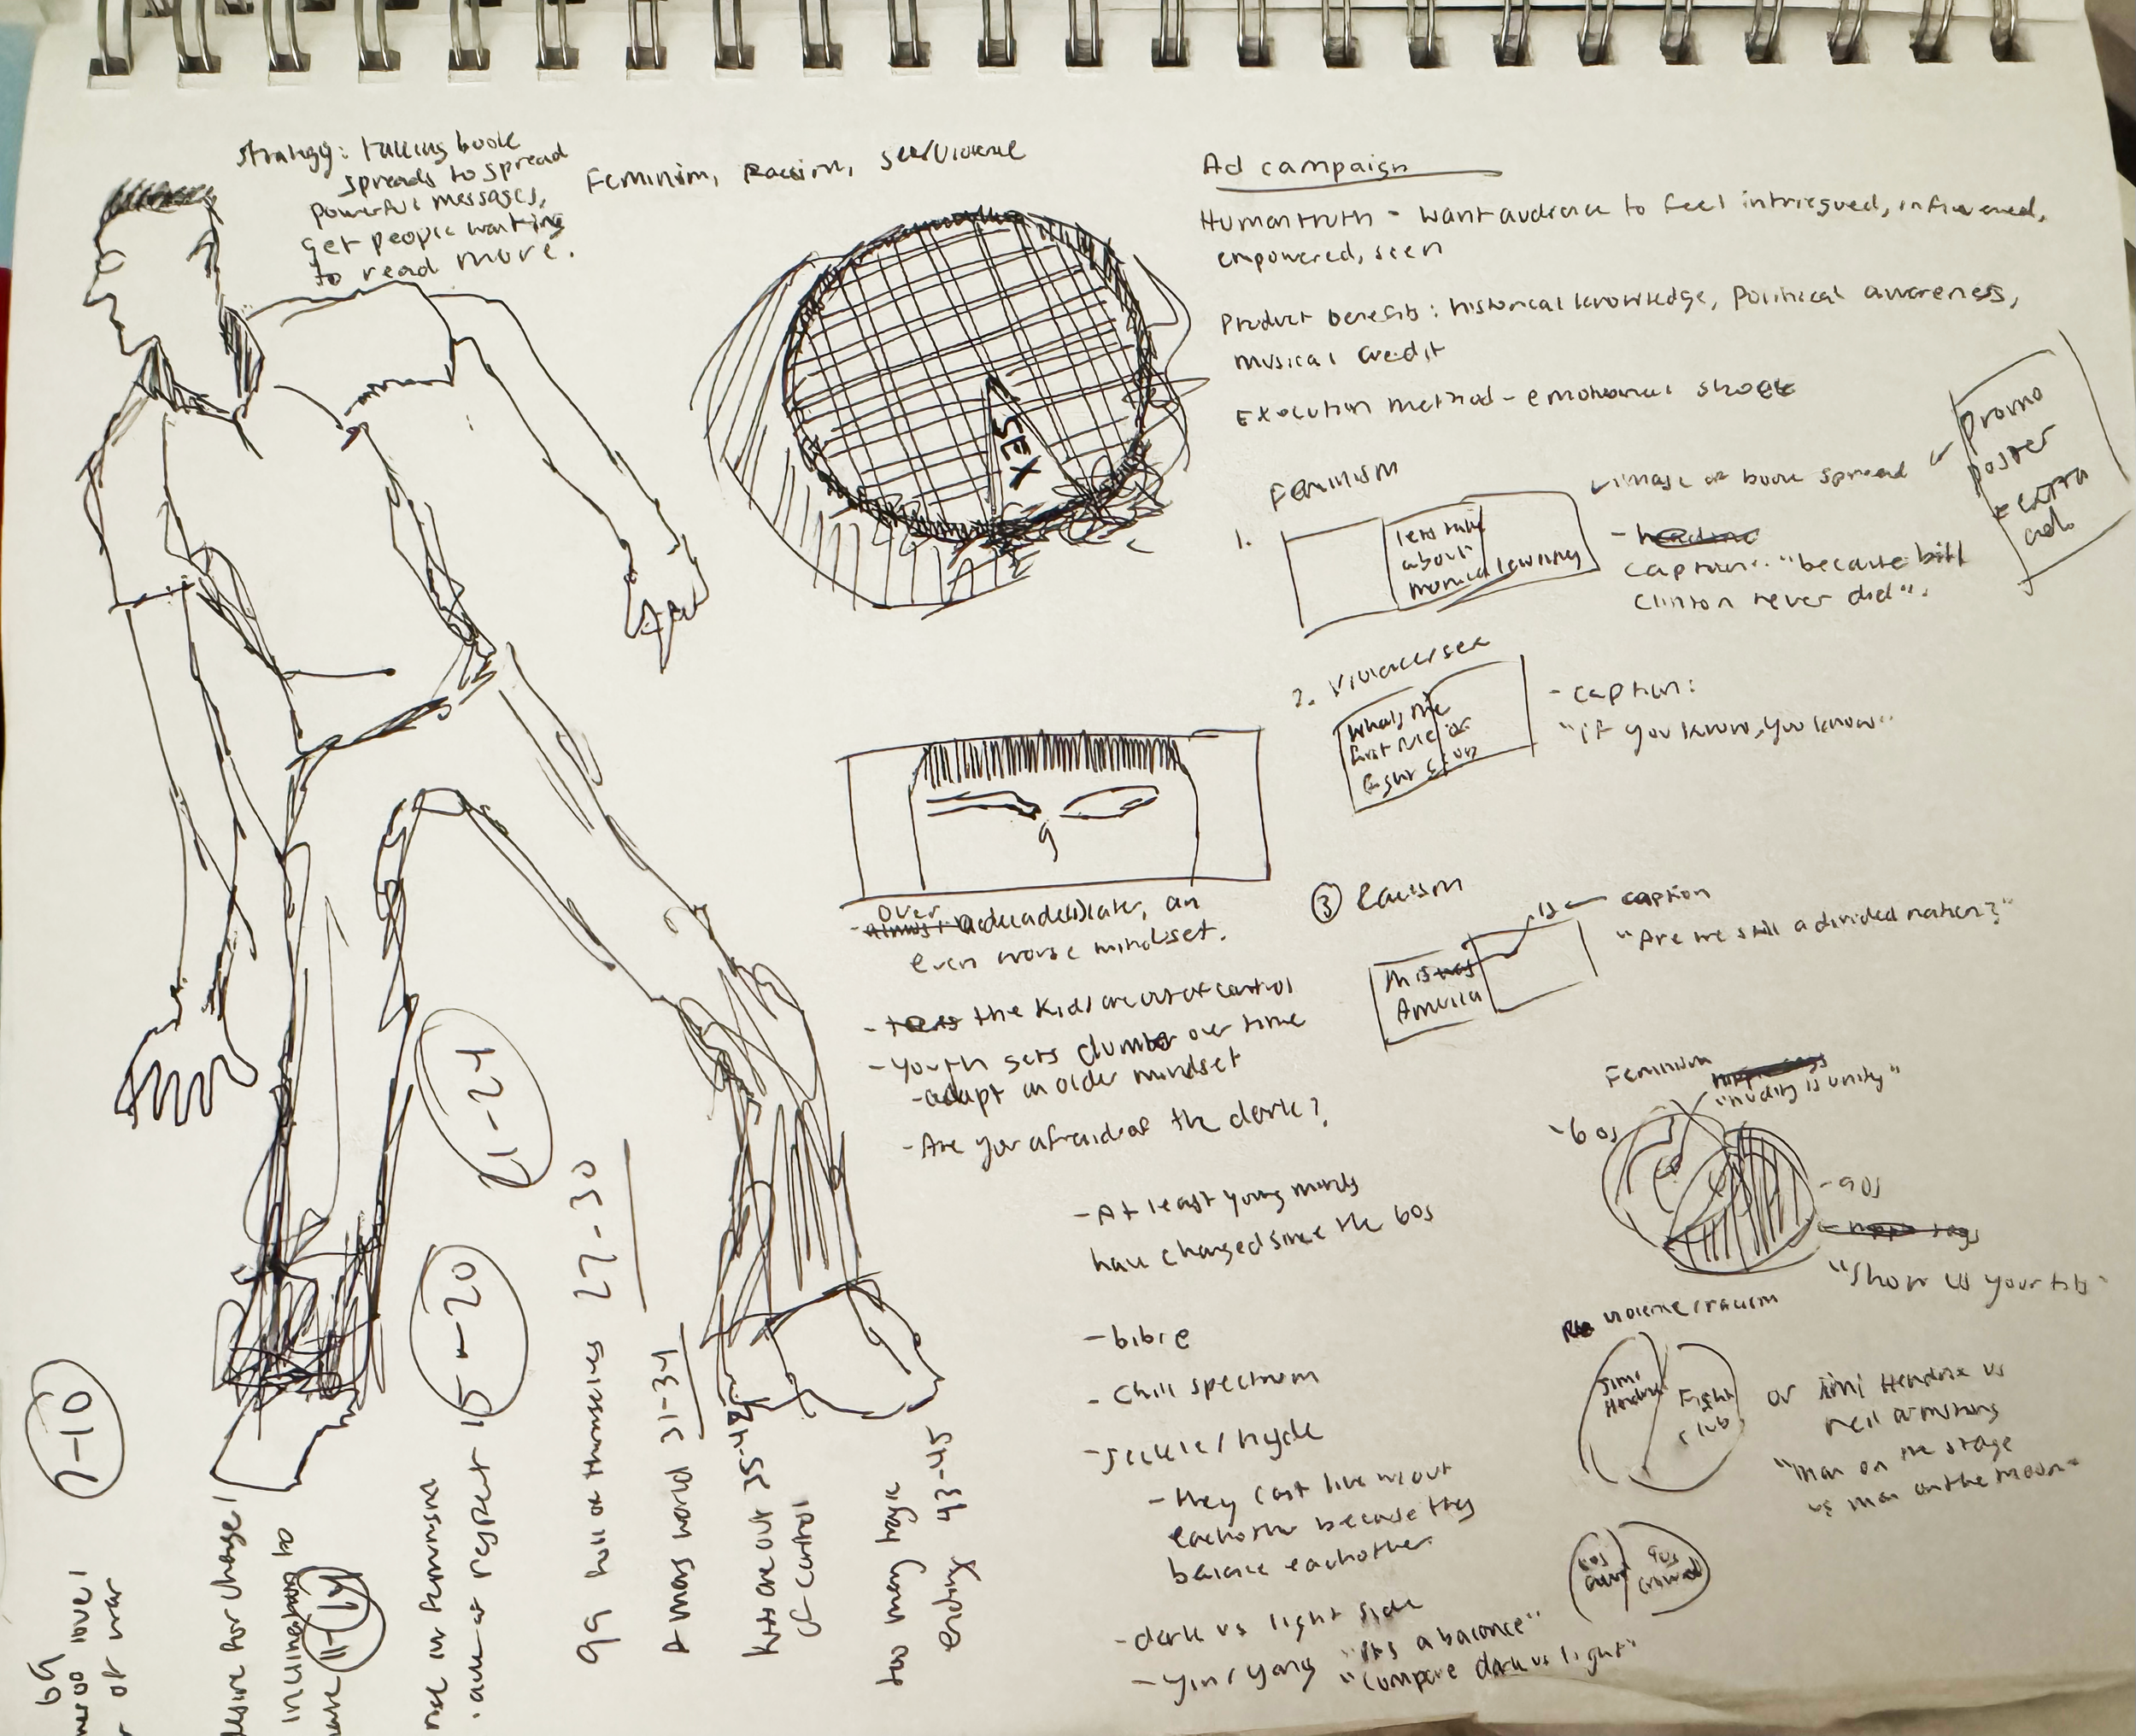 Strategy: taking book
spreads to spread
powerful messages,
get people wanting
to read more.
Feminism, Racism, sex/violence
SEX
Ad campaign
Human truth - want audience to feel intriegued, influenced,
empowered, seen
Product benefits: historical knowledge, political awareness,
musical credit
Execution method - emotional shock
promo
poster
= extra
ads
Feminism
image of book spread
1.
lets talk
about
monica lewinsky
- headline
caption: "because bill
Clinton never did".
2. Violence/sex
whats the
first rule of
fight club
- caption:
"if you know, you know"
③ Racism
caption
"Are we still a divided nation?"
this was
America
- almost over a decade(s) later, an
even worse mindset.
- the kids are out of control
- Youth gets dumber over time
- adapt an older mindset
- Are you afraid of the dark?
- At least young minds
have changed since the 60s
- bible
- Chill spectrum
- Jeckle / hyde
- they cant live w/out
eachother because they
balance eachother.
- dark vs light side
- yin / yang "its a balance"
"compare dark vs light"
Feminism
"nudity is unity"
- 60s
- 90s
"Show us your tits"
violence/racism
Jimi
Hendrix
Fight
club
or Jimi Hendrix vs
neil armstrong
"man on the stage
vs man on the moon"
60s
90s
crowd
69
7-10
desire for change!
11-14
rise in feminism
15-20
21-24
99 hell on themselves 27-30
A mans world 31-34
kids are out 35-42
of control
too many tragic
ending 43-45